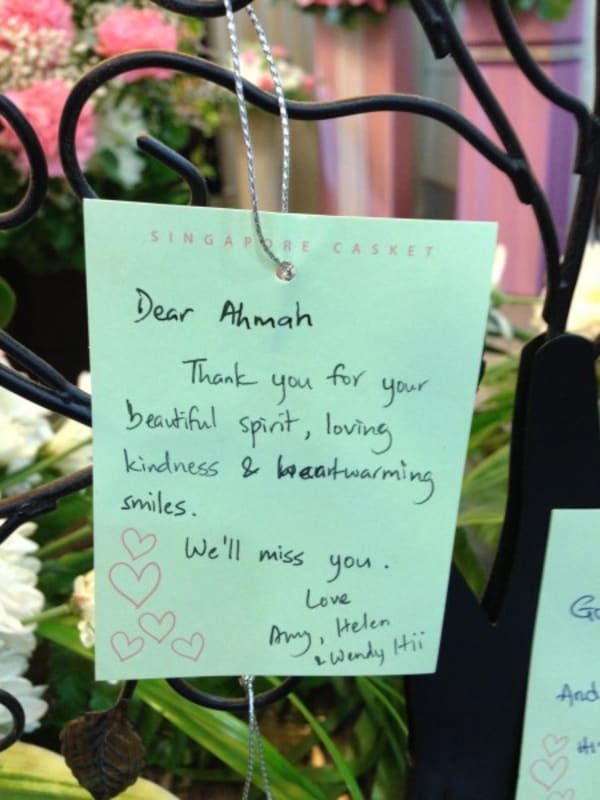 SINGAPORE CASKET
Dear Ahmah
Thank you for your
beautiful spirit, loving
kindness & heartwarming
smiles.
We'll miss you.
Love
Amy, Helen
& Wendy Hii
And